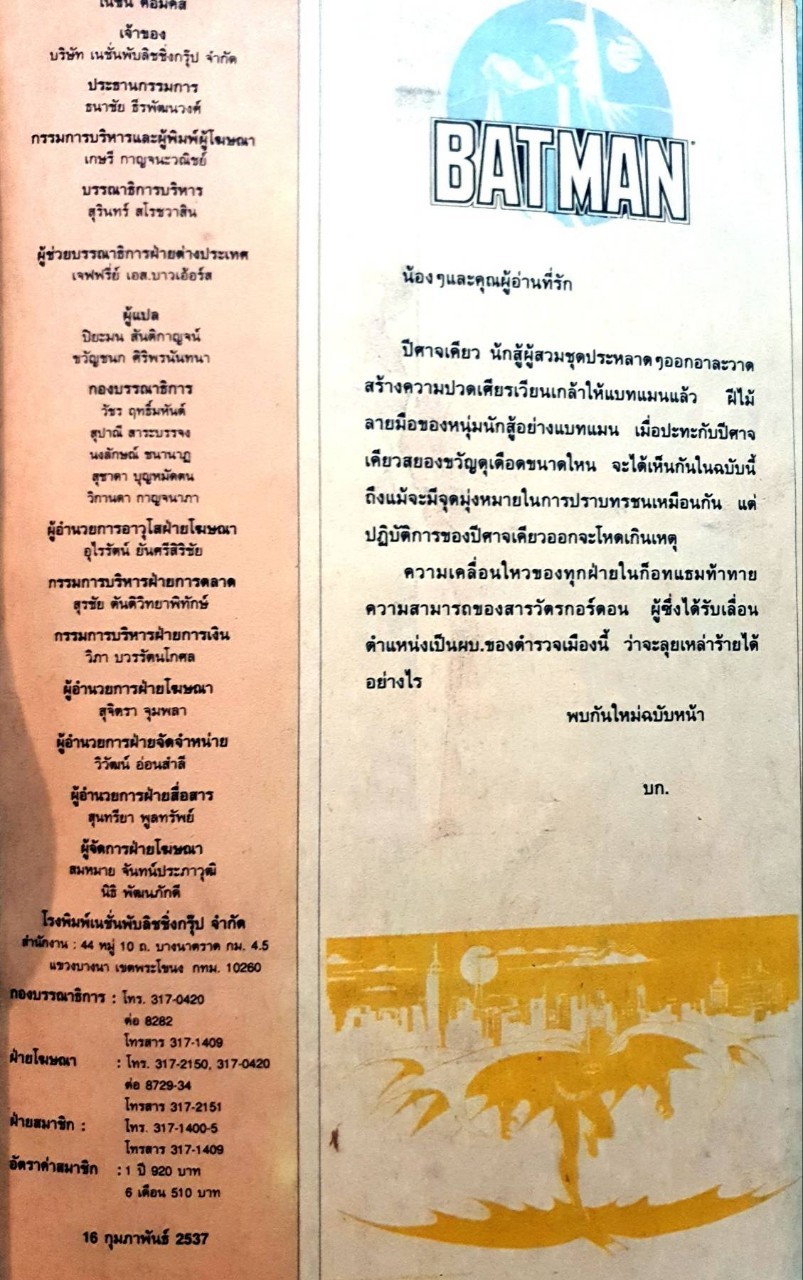 เนชั่น คอมิคส์
เจ้าของ
บริษัท เนชั่นพับลิชชิ่งกรุ๊ป จำกัด
ประธานกรรมการ
ธนาชัย ธีรพัฒนวงศ์
กรรมการบริหารและผู้พิมพ์ผู้โฆษณา
เกษรี กาญจนะวณิชย์
บรรณาธิการบริหาร
สุรินทร์ สโรชวาสิน
ผู้ช่วยบรรณาธิการฝ่ายต่างประเทศ
เจฟฟรี่ย์ เอส.บาวเอ้อร์ส
ผู้แปล
ปิยะมน สันติกาญจน์
ขวัญชนก ศิริพรนันทนา
กองบรรณาธิการ
วัชร ฤทธิ์มหันต์
สุปาณี สาระบรรจง
นงลักษณ์ ชนานาฏ
สุชาดา บุญหมัดตน
วิกานดา กาญจนาภา
ผู้อำนวยการอาวุโสฝ่ายโฆษณา
อุไรรัตน์ ยันตรีสิริชัย
กรรมการบริหารฝ่ายการตลาด
สุรชัย ตันติวิทยาพิทักษ์
กรรมการบริหารฝ่ายการเงิน
วิภา บวรรัตนโกศล
ผู้อำนวยการฝ่ายโฆษณา
สุจิตรา จุมพลา
ผู้อำนวยการฝ่ายจัดจำหน่าย
วิวัฒน์ อ่อนสำลี
ผู้อำนวยการฝ่ายสื่อสาร
สุนทรียา พูลทรัพย์
ผู้จัดการฝ่ายโฆษณา
สมหมาย จันทน์ประภาวุฒิ
นิธิ พัฒนภักดี
โรงพิมพ์เนชั่นพับลิชชิ่งกรุ๊ป จำกัด
สำนักงาน : 44 หมู่ 10 ถ. บางนาตราด กม. 4.5
แขวงบางนา เขตพระโขนง กทม. 10260
กองบรรณาธิการ : โทร. 317-0420
ต่อ 8282
โทรสาร 317-1409
ฝ่ายโฆษณา : โทร. 317-2150, 317-0420
ต่อ 8729-34
โทรสาร 317-2151
ฝ่ายสมาชิก : โทร. 317-1400-5
โทรสาร 317-1409
อัตราค่าสมาชิก : 1 ปี 920 บาท
6 เดือน 510 บาท
16 กุมภาพันธ์ 2537
BATMAN
น้องๆและคุณผู้อ่านที่รัก
ปีศาจเคียว นักสู้ผู้สวมชุดประหลาดๆออกอาละวาด
สร้างความปวดเศียรเวียนเกล้าให้แบทแมนแล้ว ฝีไม้
ลายมือของหนุ่มนักสู้อย่างแบทแมน เมื่อปะทะกับปีศาจ
เคียวสยองขวัญดุเดือดขนาดไหน จะได้เห็นกันในฉบับนี้
ถึงแม้จะมีจุดมุ่งหมายในการปราบทรชนเหมือนกัน แต่
ปฏิบัติการของปีศาจเคียวออกจะโหดเกินเหตุ
ความเคลื่อนไหวของทุกฝ่ายในก็อทแธมท้าทาย
ความสามารถของสารวัตรกอร์ดอน ผู้ซึ่งได้รับเลื่อน
ตำแหน่งเป็นผบ.ของตำรวจเมืองนี้ ว่าจะลุยเหล่าร้ายได้
อย่างไร
พบกันใหม่ฉบับหน้า
บก.